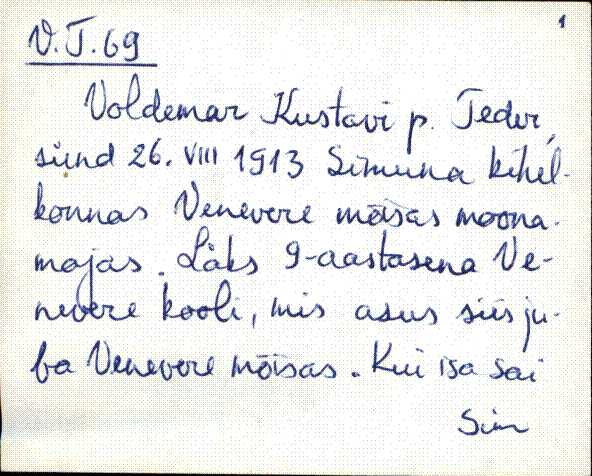 1
V.T.69
Voldemar Kustavi p. Teder,
sünd 26. VIII 1913 Simuna kihel-
konnas Venevere mõisas moona-
majas. Läks 9-aastasena Ve-
nevere kooli, mis asus siis ju-
ba Venevere mõisas. Kui isa sai
Sim